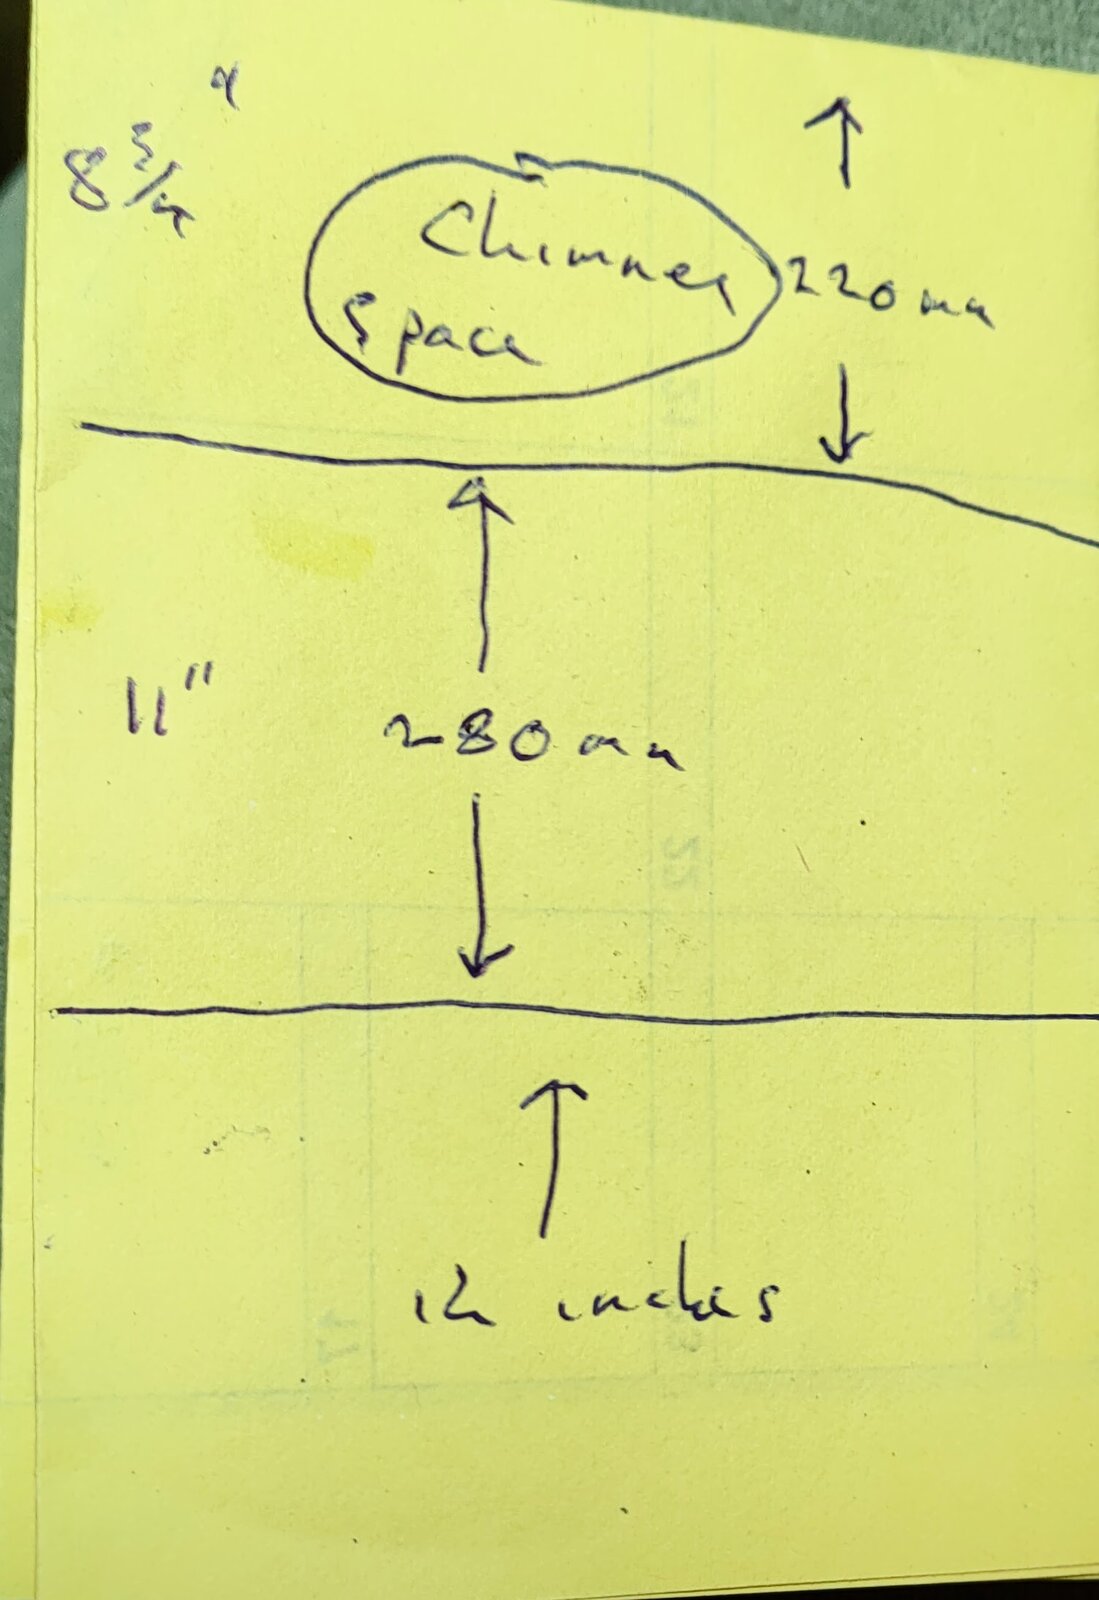 8 3/4"
Chimney
space
220mm
11"
280mm
12 inches